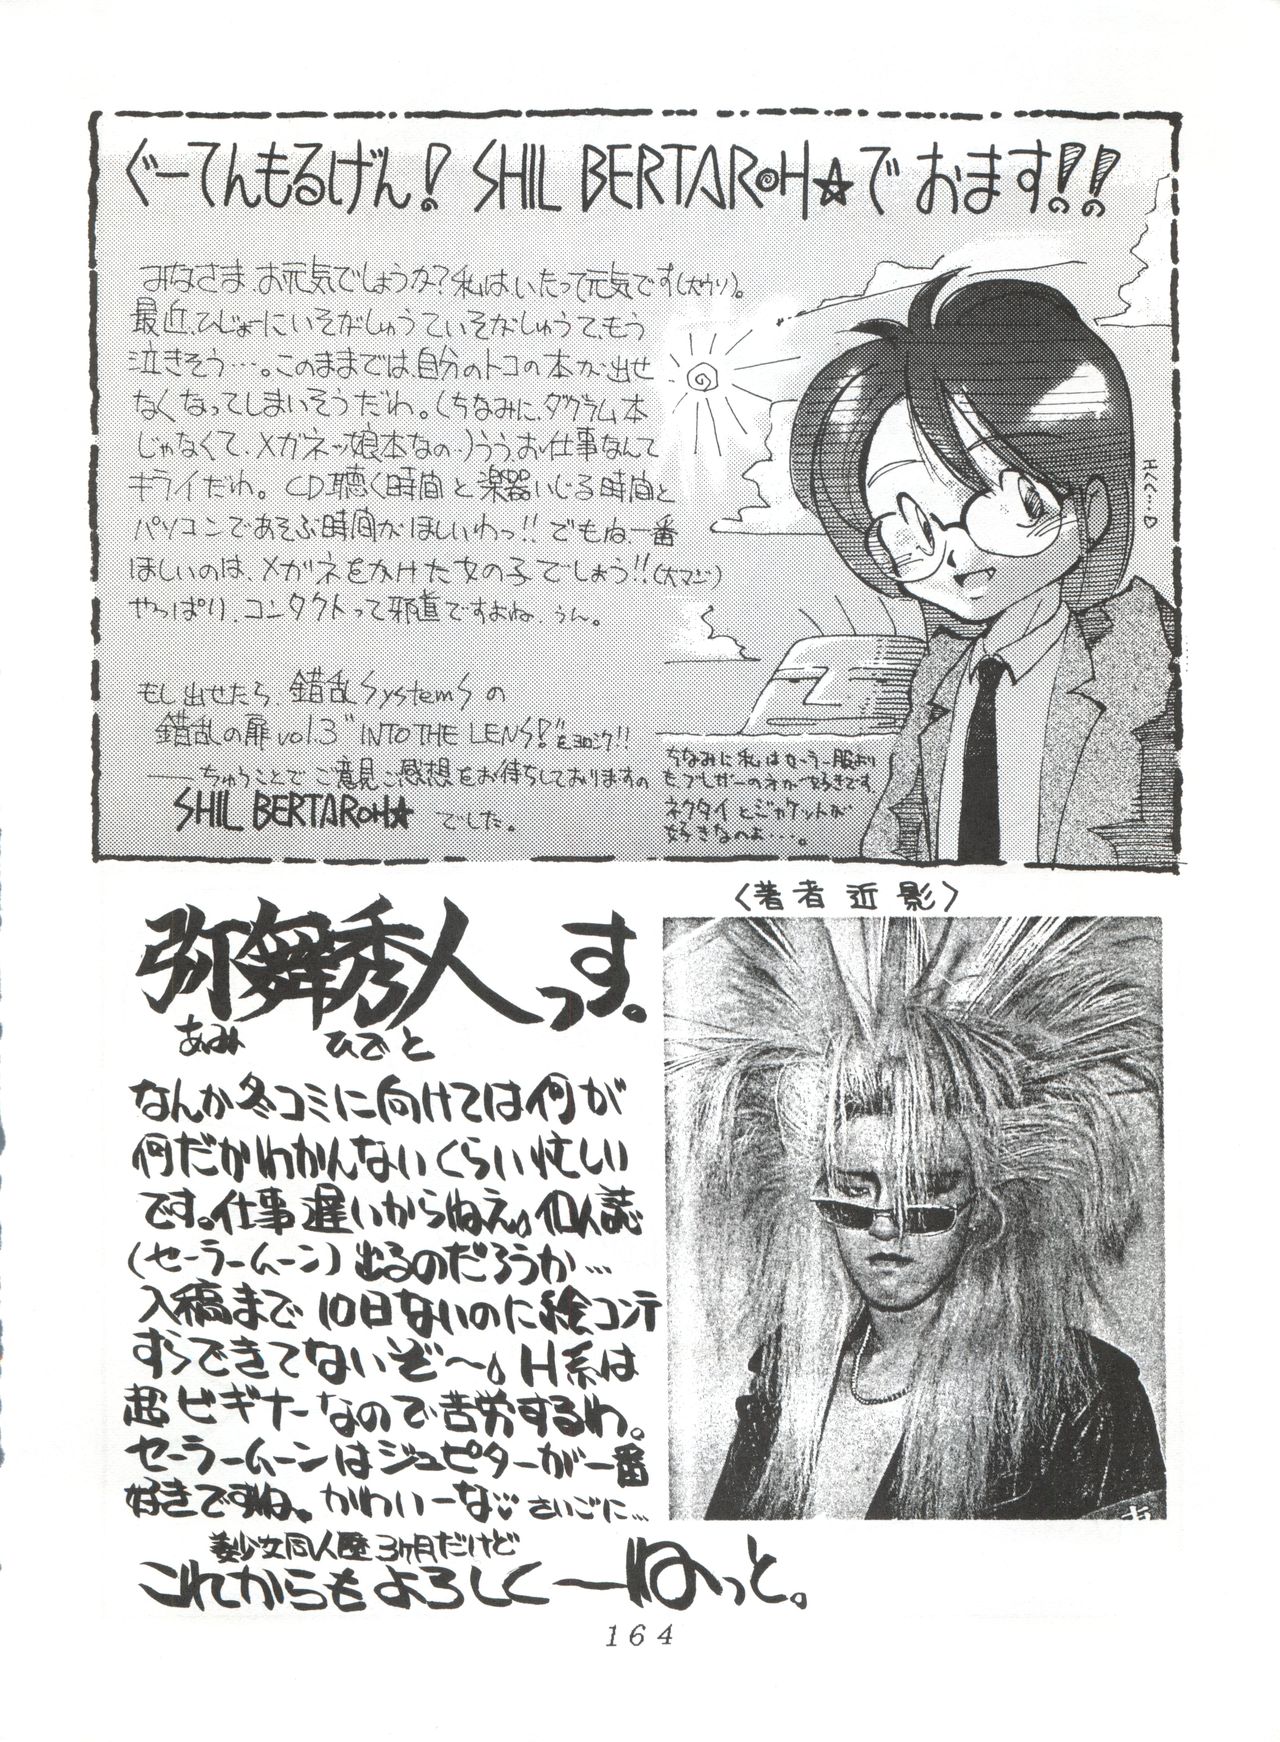 ぐーてんもるげん! SHIL BERTAROH☆でおます!!
みなさま、お元気でしょうか?私は、いたって元気です(大ウソ)。
最近、ひじょーにいそがしゅうていそがしゅうて、もう
泣きそう…。このままでは、自分のトコの本が、出せ
なくなってしまいそうだわ。(ちなみに、ダグラム本
じゃなくて、メガネッ娘本なの…)ううぅお仕事なんて
キライだわ。CD聴く時間と楽器いじる時間と
パソコンであそぶ時間がほしいわっ!! でもね、一番
ほしいのは、メガネをかけた女の子でしょう!!(大マジ)
やっぱり、コンタクトって邪道ですよね、うん。
もし出せたら、錯乱SystemSの
錯乱の扉vol.3 "INTO THE LENS!"をヨロシク!!
――ちゅうことでご意見ご感想をお待ちしておりますの
SHIL BERTAROH☆ でした。
Hくく…♡
ちなみに私はセーラー服より
も、ブレザーのオが好きです。
ネクタイとジャケットが
好きなのよ…。
弥舞秀人っす。
あみ ひでと
〈著者近影〉
なんか冬コミに向けては何が
何だかわかんないくらい忙しい
です。仕事遅いからねえ。個人誌
(セーラームーン)出るのだろうか…
入稿まで10日ないのに絵コンテ
すらできてないぞ〜。H系は
超ビギナーなので苦労するわ。
セーラームーンはジュピターが一番
好きですね。かわいーな♡ さいごに…
美少女同人歴3ヶ月だけど
これからもよろしく〜ねっと。
164